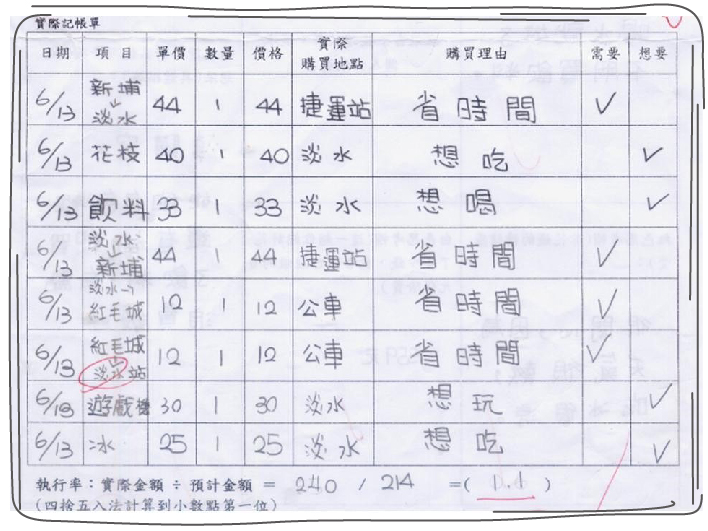 實際記帳單
日期 項目 單價 數量 價格 實際購買地點 購買理由 需要 想要
6/13 新埔→淡水 44 1 44 捷運站 省時間 ✓
6/13 花枝 40 1 40 淡水 想吃 ✓
6/13 飲料 33 1 33 淡水 想喝 ✓
6/13 淡水→新埔 44 1 44 捷運站 省時間 ✓
6/13 淡水→紅毛城 12 1 12 公車 省時間 ✓
6/13 紅毛城→淡水站 12 1 12 公車 省時間 ✓
6/13 遊戲機 30 1 30 淡水 想玩 ✓
6/13 冰 25 1 25 淡水 想吃 ✓
執行率：實際金額 ÷ 預計金額 = 240 / 214 =( 1.1 )
(四捨五入法計算到小數點第一位)